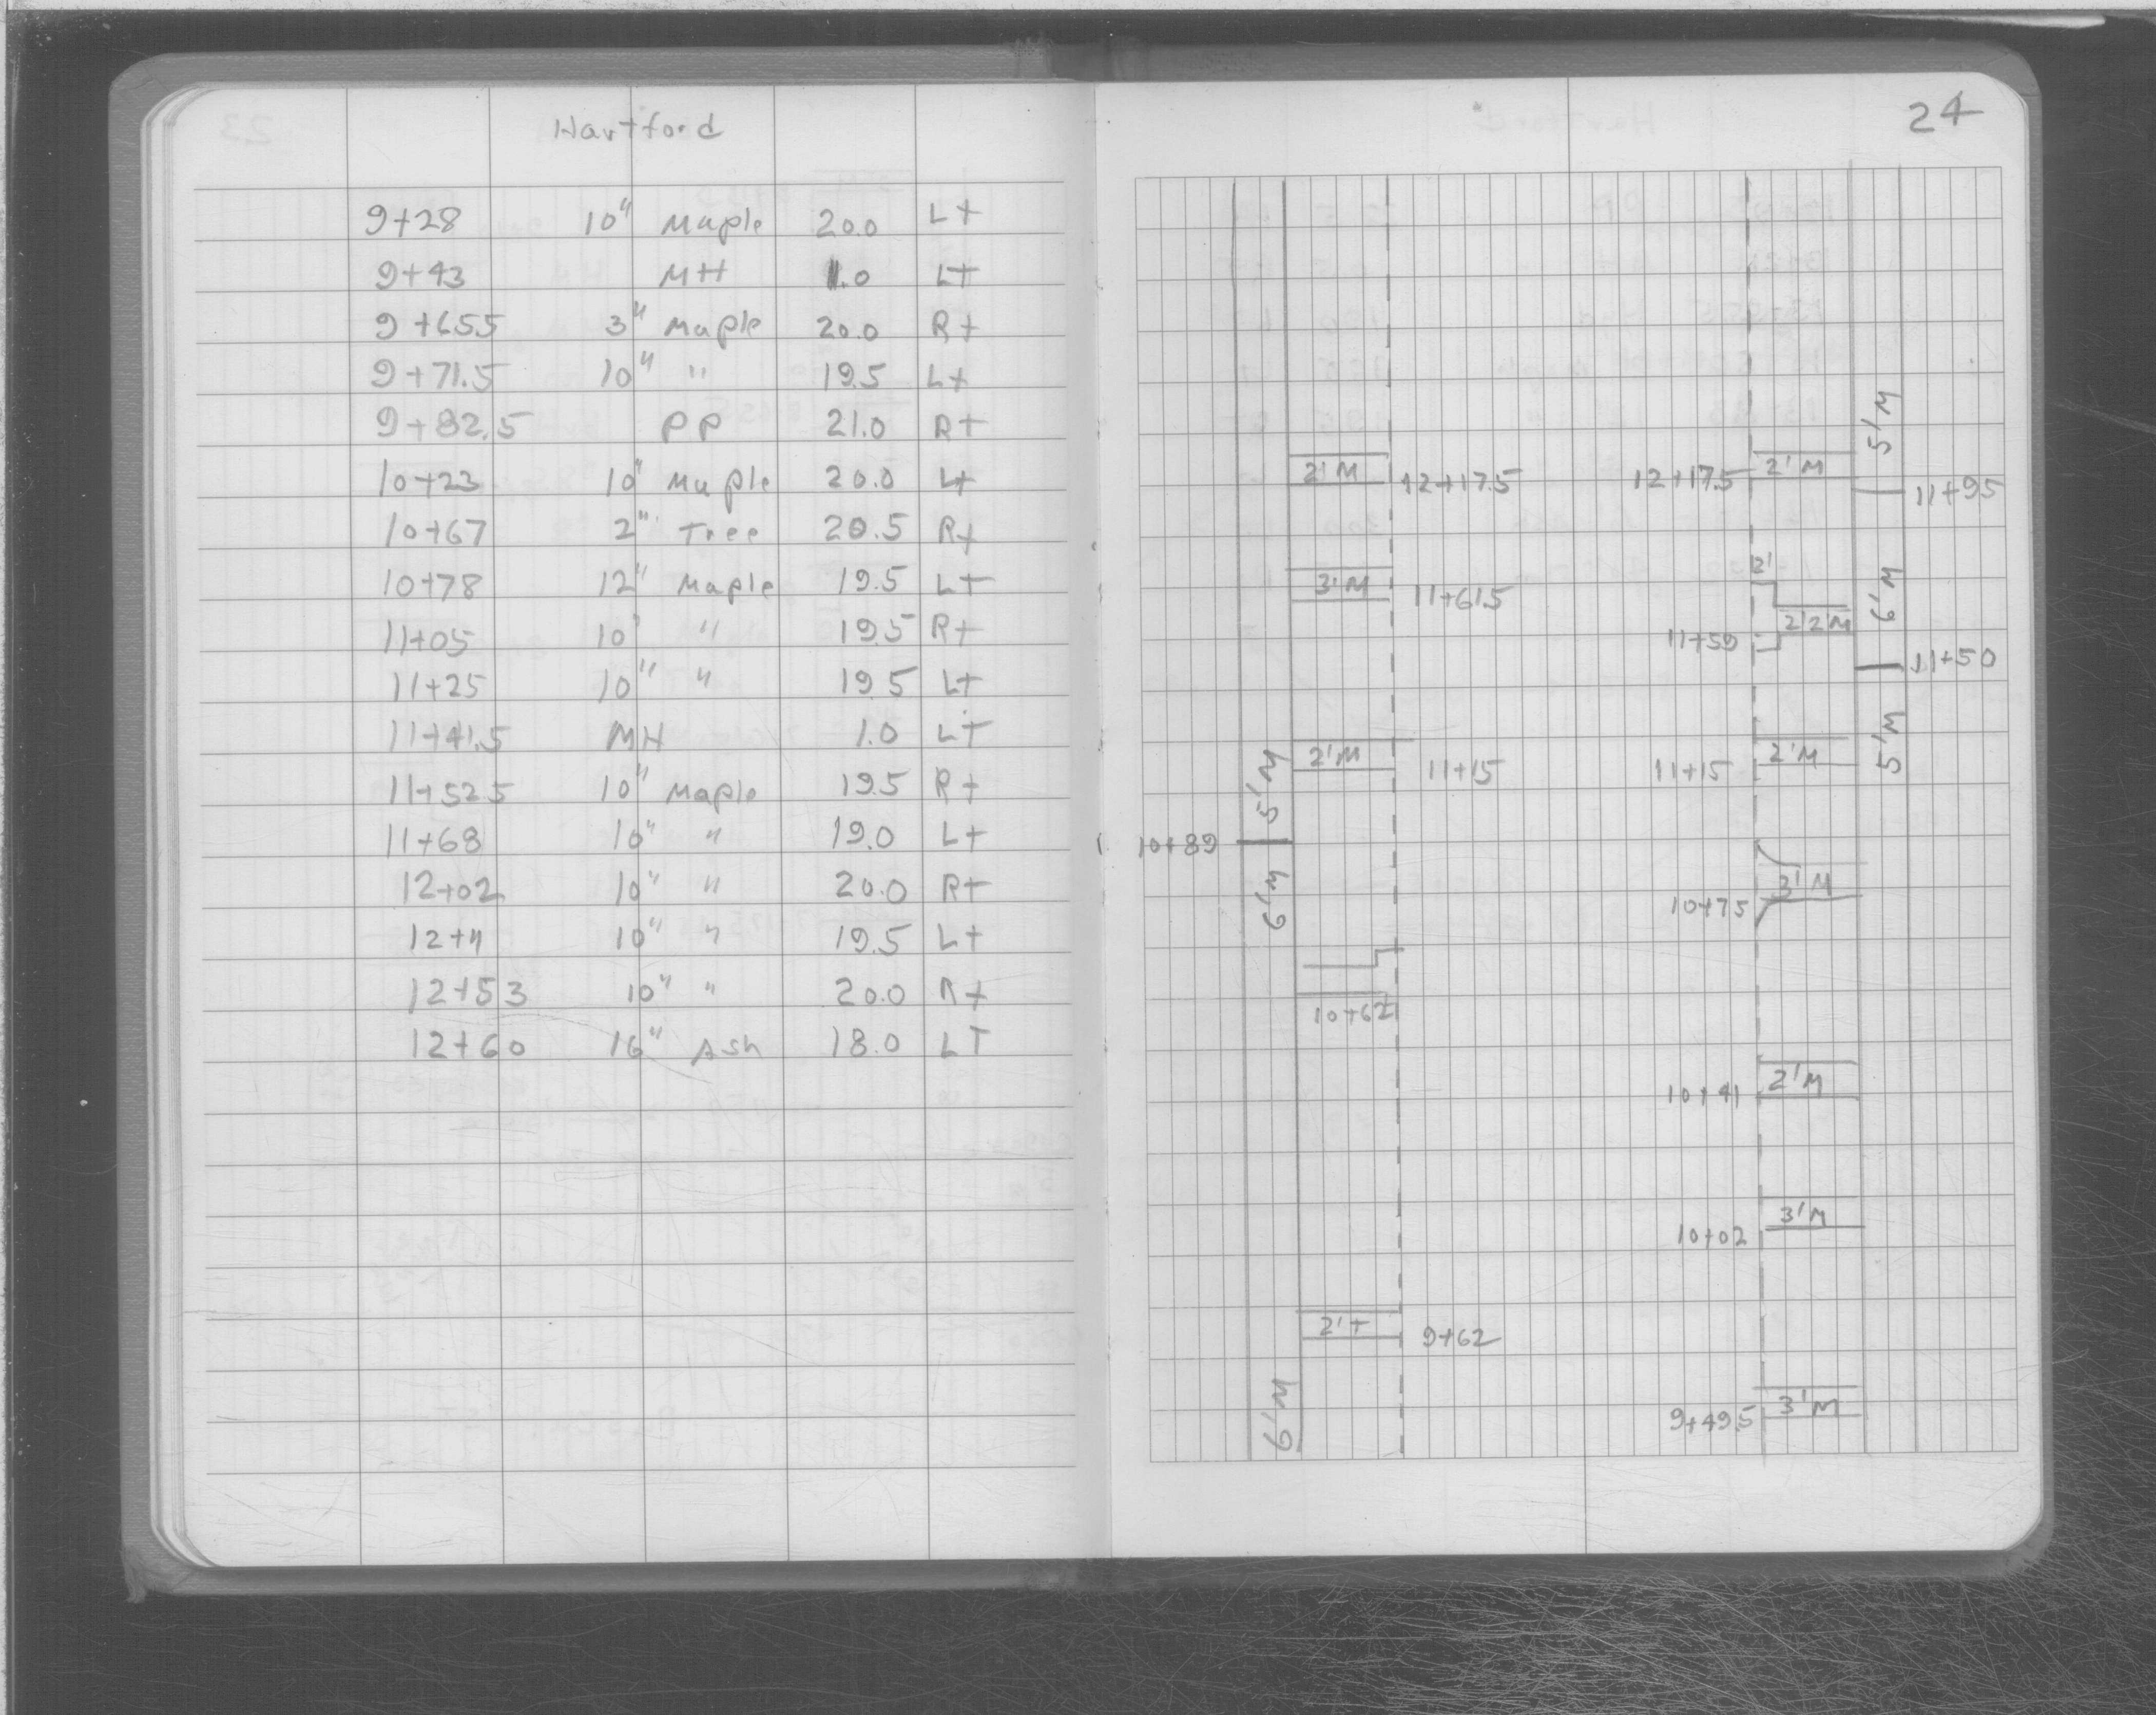 Hartford
9+28 10" Maple 20.0 Lt
9+43 MH 1.0 LT
9+65.5 3" Maple 20.0 Rt
9+71.5 10" " 19.5 Lt
9+82.5 PP 21.0 RT
10+23 10" Maple 20.0 Lt
10+67 2" Tree 20.5 Rt
10+78 12" Maple 19.5 LT
11+05 10" " 19.5 Rt
11+25 10" " 19.5 Lt
11+41.5 MH 1.0 LT
11+52.5 10" Maple 19.5 Rt
11+68 10" " 19.0 Lt
12+02 10" " 20.0 RT
12+11 10" " 19.5 Lt
12+53 10" " 20.0 Rt
12+60 16" Ash 18.0 LT
24
5'M
2'M 12+17.5 12+17.5 2'M 11+95
2'
3'M 11+61.5 6'M
11+59 2'2'M
11+50
5'M 2'M 11+15 11+15 2'M 5'M
10+89
6'M 10+75 3'M
10+62
10+41 2'M
10+02 3'M
2'T 9+62
6'M 9+49.5 3'M